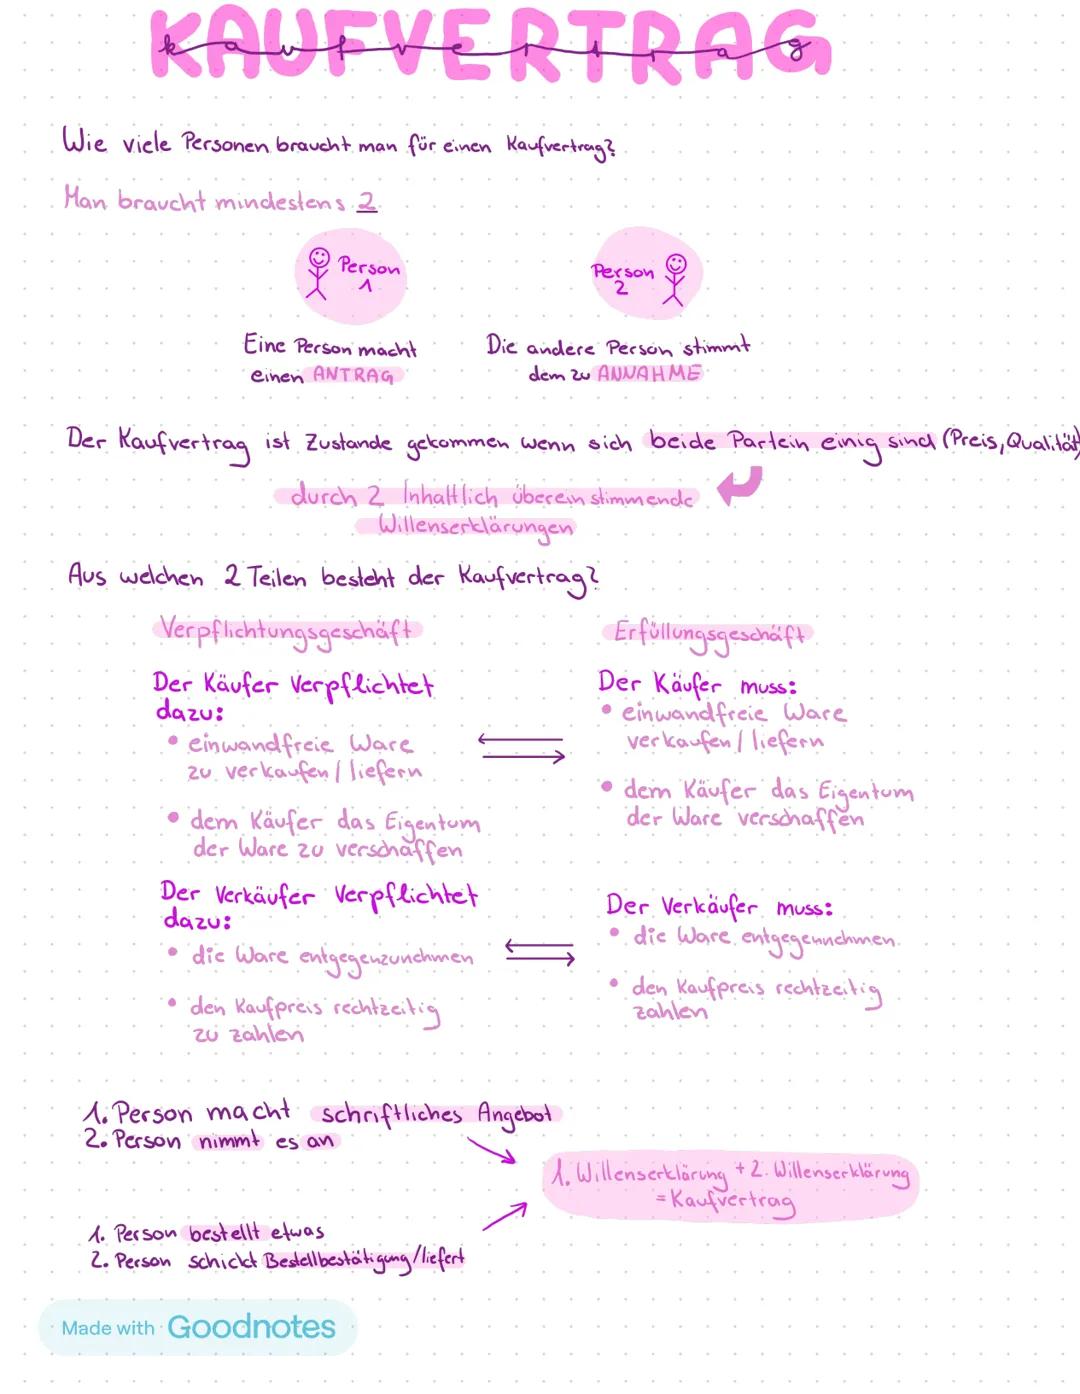 KAUFVERTRAG
kaufvertrag
Wie viele Personen braucht man für einen Kaufvertrag?
Man braucht mindestens 2
Person 1
Person 2
Eine Person macht
einen ANTRAG
Die andere Person stimmt
dem zu ANNAHME
Der Kaufvertrag ist Zustande gekommen wenn sich beide Partein einig sind (Preis, Qualität)
durch 2 Inhaltlich übereinstimmende
Willenserklärungen
Aus welchen 2 Teilen besteht der Kaufvertrag?
Verpflichtungsgeschäft
Der Käufer Verpflichtet
dazu:
• einwandfreie Ware
zu verkaufen / liefern
• dem Käufer das Eigentum
der Ware zu verschaffen
Der Verkäufer Verpflichtet
dazu:
• die Ware entgegenzunehmen
• den Kaufpreis rechtzeitig
zu zahlen
Erfüllungsgeschäft
Der Käufer muss:
• einwandfreie Ware
verkaufen / liefern
• dem Käufer das Eigentum
der Ware verschaffen
Der Verkäufer muss:
• die Ware entgegennehmen
• den Kaufpreis rechtzeitig
zahlen
1. Person macht schriftliches Angebot
2. Person nimmt es an
1. Willenserklärung + 2. Willenserklärung
= Kaufvertrag
1. Person bestellt etwas
2. Person schickt Bestellbestätigung/liefert
Made with Goodnotes